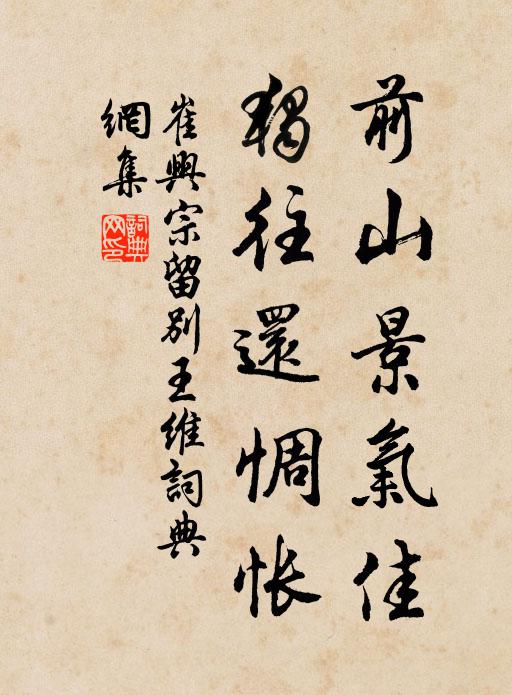 前山景氣佳
獨往還惆怅
崔興宗留别王維詞典
網集
詞典
网印